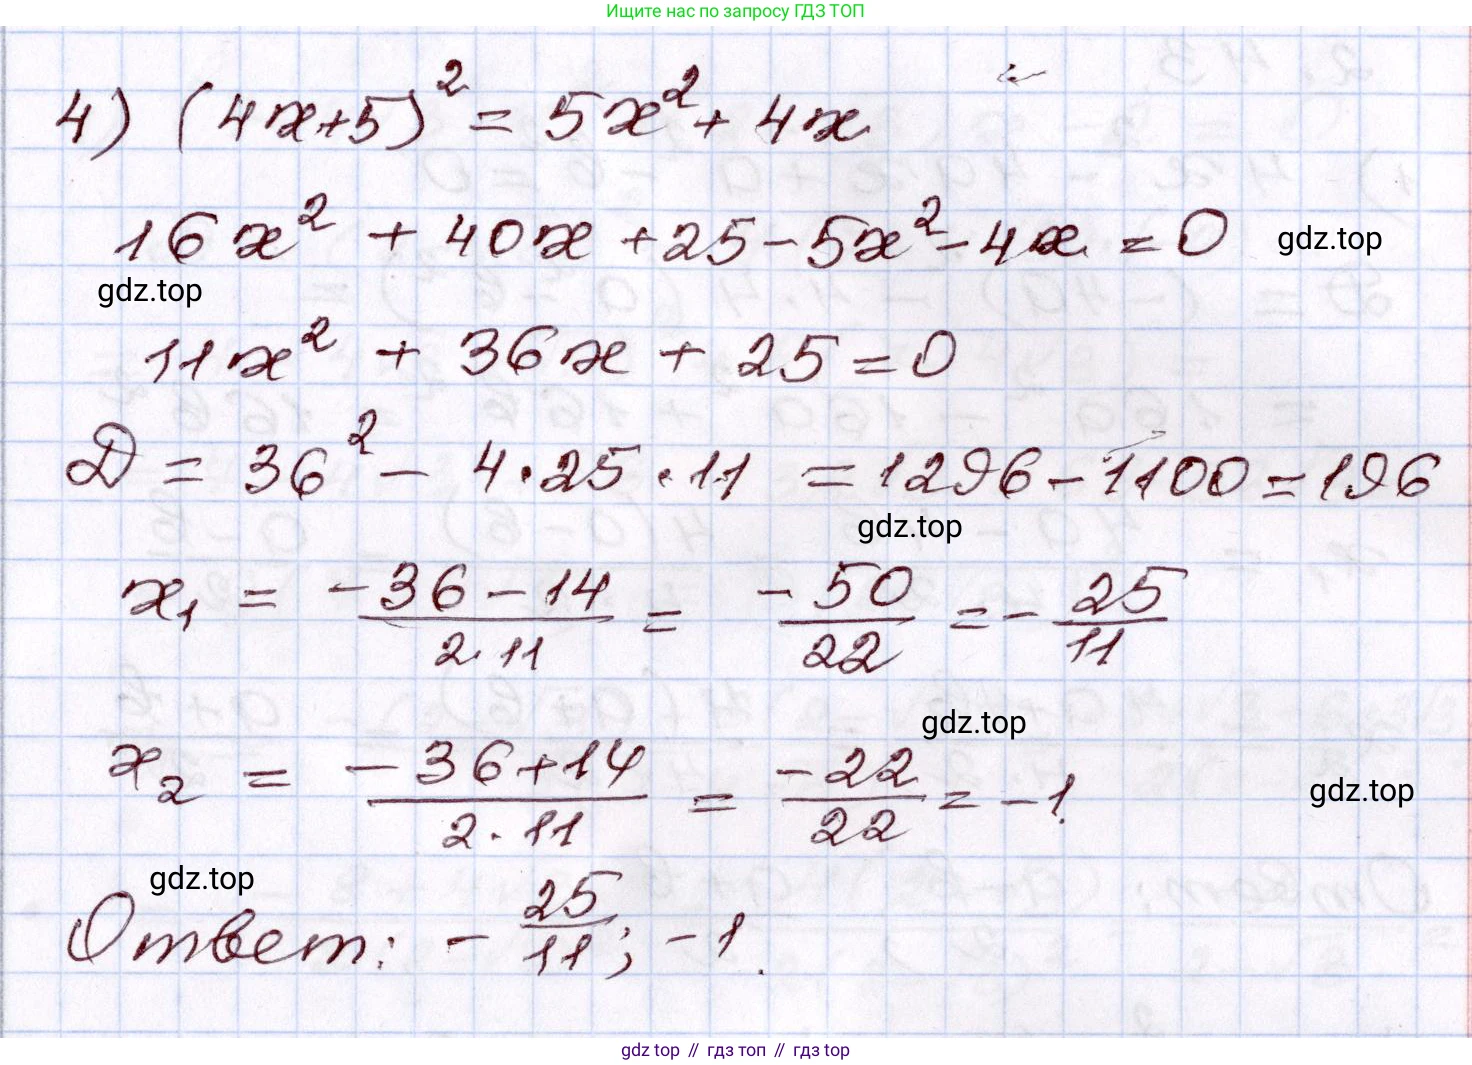 Ищите нас по запросу ГДЗ ТОП
4) (4x+5)² = 5x² + 4x
16x² + 40x + 25 - 5x² - 4x = 0
gdz.top
gdz.top
11x² + 36x + 25 = 0
D = 36² - 4·25·11 = 1296 - 1100 = 196
gdz.top
x₁ = (-36-14)/(2·11) = -50/22 = -25/11
gdz.top
x₂ = (-36+14)/(2·11) = -22/22 = -1.
gdz.top
gdz.top
Ответ: -25/11; -1.
gdz top // гдз топ // gdz top